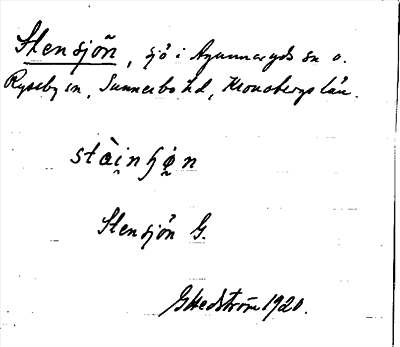 Stensjön, sjö i Agunnaryds sn o.
Ryssby sn, Sunnerbo hd, Kronobergs län.
stàinɧø̀n
Stensjön G.
G Hedström 1920.